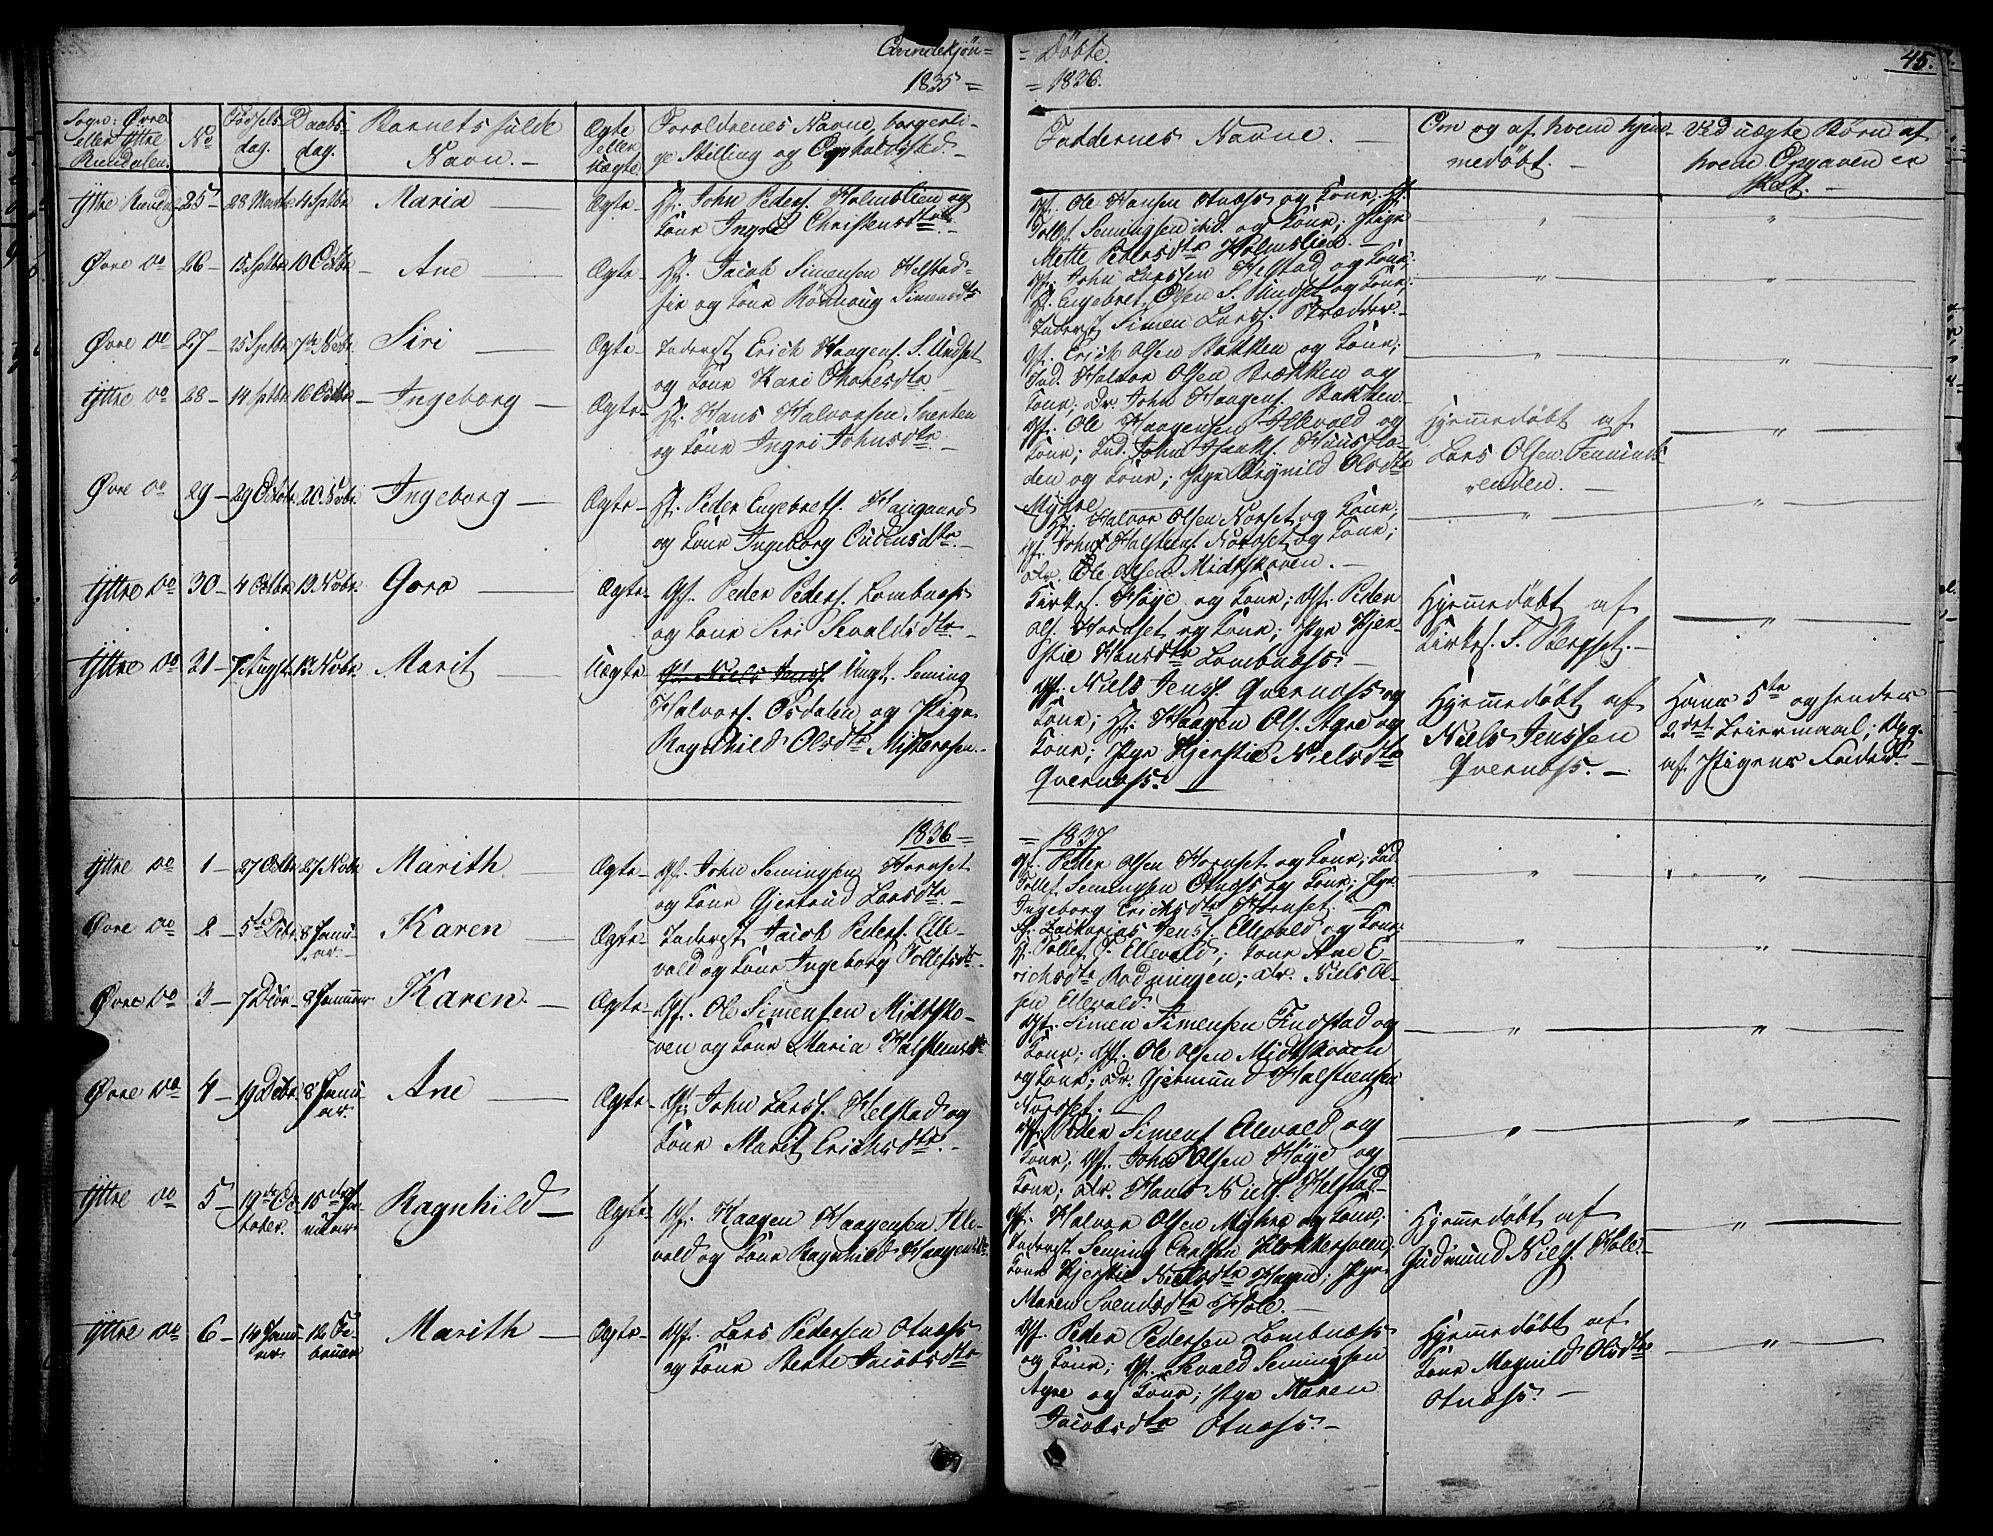 Qvindekjön = = Döbte.
1835 = = 1836.
45.
Sogn: Øvre eller Yttre Rendalen.
No
Födsels dag.
Daabs dag.
Barnets fulde Navn. —
Ægte eller Uægte
Forældrenes Navne, borgerlige Stilling og Opholdssted. —
Faddernes Navne. —
Om og af hvem hjemmedöbt. —
Ved uægte Börn af hvem Opgaven er skeet. —
Yttre Rendal 25 — 28 4 Septbr Maria Ægte —
Gf. John Peders. Holmslien og
Kone Ingri Christensdtr —
Gf. Ole Hansen Otnæss og Kone; Gf.
Tollef Semmingsen ibid. og Kone; Pige
Mette Pedersdtr Holmslien. —
Øvre do 26 — 15 Septbr 10 Octbr — Ane — Ægte —
Jacob Simensen Helstad-
og Kone Rönnoug Simensdtr
John Larssen Helstad og Kone;
Engebret Olsen S. Undset og Kone;
Inderst Simen Larss. Skrædder. —
Øvre do 27 — 25 Septbr 7de Novbr. Siri — Ægte —
Inderst Erich Haagens. S. Undset
og Kone Kari Tharesdtr
Gf. Erich Olsen Bakken og Kone;
Ind. Halvor Olsen Brækken og
Kone; Dr. John Haagens. Bakken
Yttre do 28 — 14 Septbr 16 Octbr — Ingeborg — Ægte —
Hans Halvorsen
og Kone Ingri Johnsdtr —
Gf. Ole Haagensen Ellevold og
Kone; Ind. John
og Kone; Pige Olsdtr
Myhre
Hjemmedöbt af
Lars Olsen
Øvre do 29 — 29 Octobr 20 Novbr. Ingeborg — Ægte —
Peder Engebrets. Haugaard
og Kone Ingeborg Evensdtr. —
Halvor Olsen Norset og Kone;
Gf. John Halstens. Nordset og Kone;
Dr. Ole Olsen Midtskoven. —
Yttre do 30 — 4 Octbr. 13 Novbr. Goro — Ægte —
Gf. Peder Peders. Lombnæss
og Kone Siri Sevaldsdtr —
Kirkes. Höye og Kone; Gf. Peder
Ols. Hornset og Kone; Pige Kjer-
stie Hansdtr Lombnæss. —
Hjemmedöbt af
Kirkes. S. Bergset. —
Yttre do 31 — 7 Augst. 13 Novbr. Marit — Uægte —
Gf. Niels Jenss. Ungk. Seming
Halvors. Osdalen og Pige
Ragnhild Olsdtr Misterosen. —
Gf. Niels Jenss. Qvernæss og
Kone; Gf. Haagen Ols. Agre og
Kone; Pige Kjerstie Nielsdtr
Qvernæss. —
Hjemmedöbt af
Niels Jenssen
Qvernæss. —
Hans 5te og hendes
2det Leiermaal; Opg.
af Pigens Fader. —
1836 = = 1837
Yttre do 1 — 27 Octbr. 27 Novbr Marith — Ægte —
Gf. John Semingsen Hornset
og Kone Gjertrud Larsdtr. —
Gf. Peder Olsen Hornset og Kone; Ind.
Tollef Semingsen Otnæss og Kone; Pige
Ingeborg Erichsdtr Hornset. —
Øvre do 2 — 5te Decbr. 8 Januar. Karen — Ægte —
Inderst Jacob Peders. Elle-
vold og Kone Ingeborg Tollefsdtr. —
Zackarias Jenss. Ellevold og Kone;
Tollef J. Ellevold; Kone Ane E-
richsdtr Rodningen; Dr. Niels Ol-
sen Ellevold.
Øvre do 3 — 7 Decbr — 8 Januar Karen. — Ægte —
Gf. Ole Simensen Midtsko-
ven og Kone Maria Halstensdtr
Gf. Simen Simensen Findstad og
Kone; Gf. Ole Olsen Midtskoven
og Kone; Dr. Gjermund Halstensen
Nordset. —
Øvre do 4 — 19 Decbr. 8 Januar. Ane — Ægte —
Gf. John Larss. Helstad og
Kone Marit Erichsdtr. —
Gf. Peder Simens. Ellevold og
Kone; Gf. John Olsen Höye og
Kone; Dr. Hans Niels. Helstad
Yttre do 5 — 19de October. 15de Januar Ragnhild — Ægte
Gf. Haagen Haagensen Elle-
vold og Kone Ragnhild Haagensdtr.
Gf. Halvor Olsen Myhre og Kone;
Inderst Seming Carlsen Klokkervolen;
Kone Kjerstie Nielsdtr Hagen; Pige
Maren Svendsdtr Hole. —
Hjemmedöbt af
Gudmund Niels. Hole. —
Yttre do 6 — 14 Januar 12 Februar Marith — Ægte —
Gf. Lars Pedersen Otnæss
og Kone Berte Jacobsdtr
Gf. Peder Pedersen Lombnæss
og Kone; Gf. Sevald Semingsen
Agre og Kone; Pige Maren
Jacobsdtr Otnæss. —
Hjemmedöbt af
Kone Magnild Olsdtr
Otnæss. —